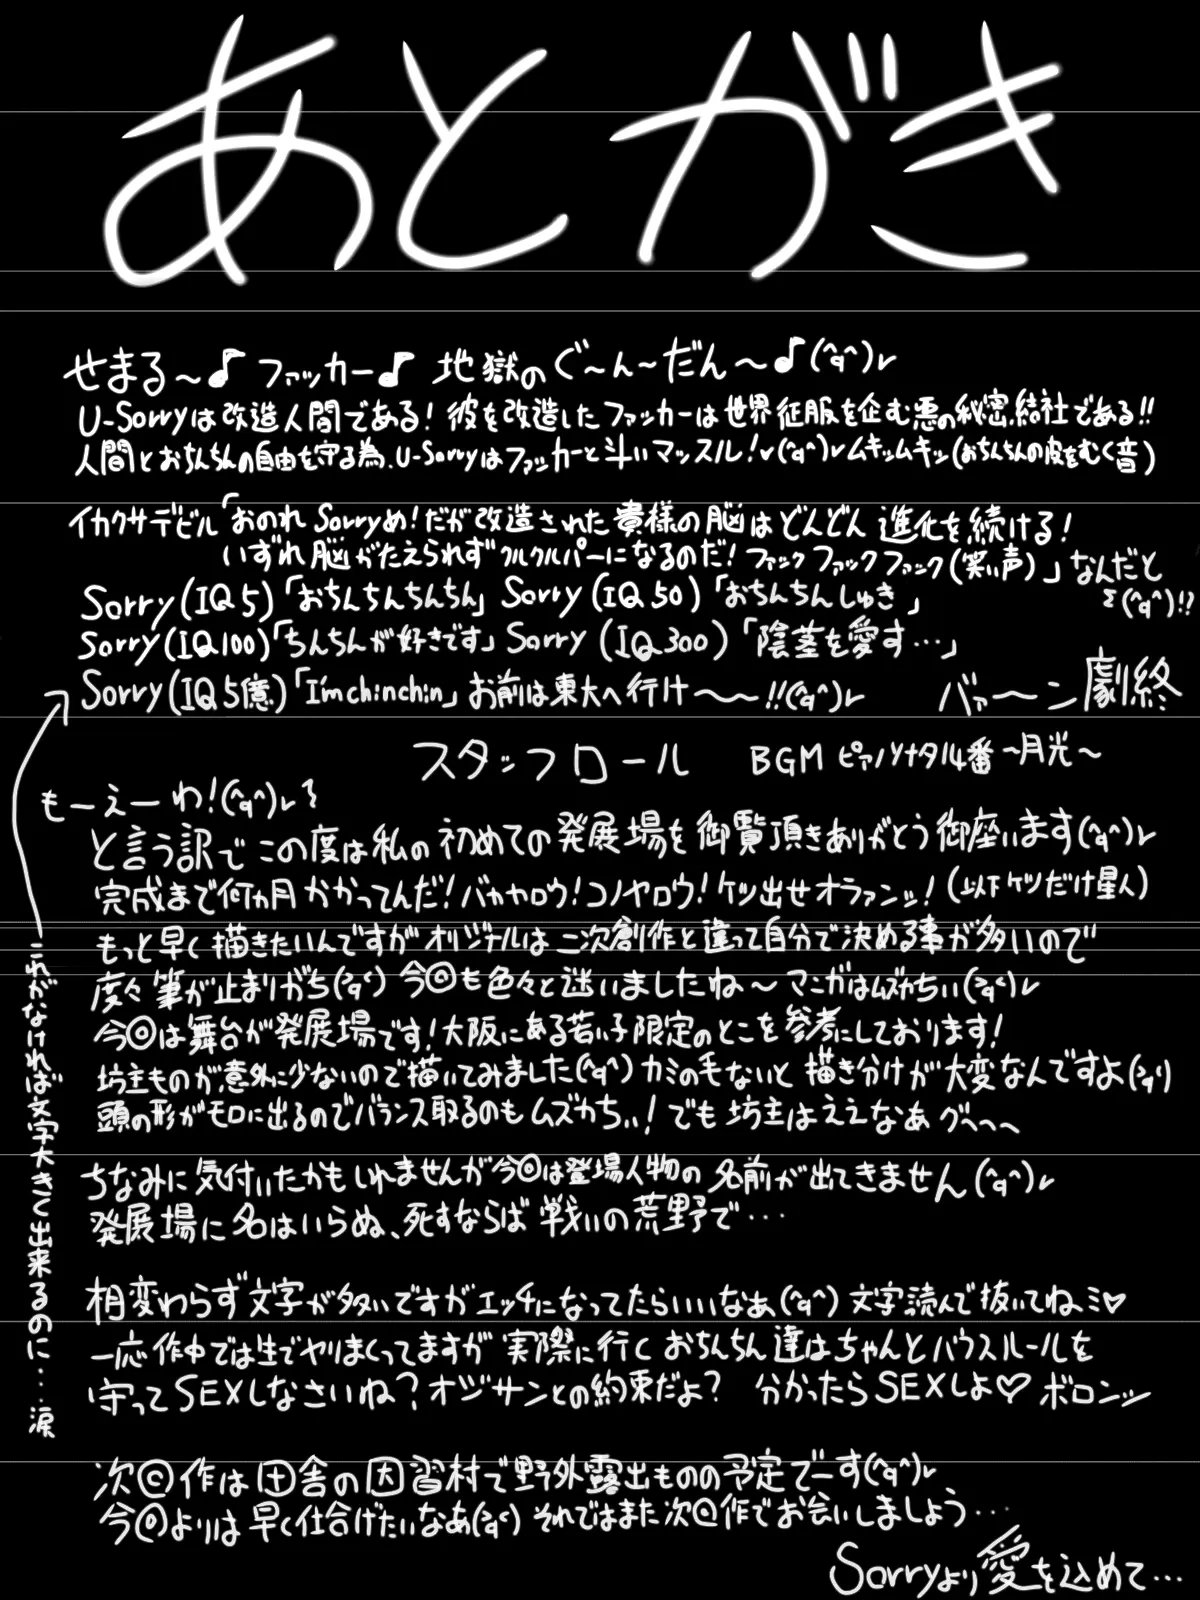 あとがき
せまる～♪ ファッカー♪ 地獄のぐ～ん～だん～♪(^q^)r
U-Sorryは改造人間である!彼を改造したファッカーは世界征服を企む悪の秘密結社である!!
人間とおちんちんの自由を守る為、U-Sorryはファッカーと斗いマッスル!v(^q^)rムキッムキッ(おちんちんの皮をむく音)
イカクサデビル「おのれSorryめ!だが改造された貴様の脳はどんどん進化を続ける!
いずれ脳がたえられずクルクルパーになるのだ!ファックファックファック(笑い声)」なんだと
Σ(^q^)!?
Sorry(IQ5)「おちんちんちんちん」Sorry(IQ50)「おちんちんしゅき」
Sorry(IQ100)「ちんちんが好きです」Sorry(IQ300)「陰茎を愛す…」
Sorry(IQ5億)「I'm chinchin」お前は東大へ行け～～!!(^q^)r バァ～ン劇終
スタッフロール BGM ピアノソナタ14番～月光～
もーえーわ!(^q^)r ミ
と言う訳でこの度は私の初めての発展場を御覧頂きありがとう御座います(^q^)r
完成まで何ヵ月かかってんだ!バカヤロウ!コノヤロウ!ケツ出せオラァンッ!(以下ケツだけ星人)
もっと早く描きたいんですがオリジナルは二次創作と違って自分で決める事が多いので
度々筆が止まりがち(>q<) 今回も色々と迷いましたね～マンガはムズカちぃ(>q<)r
今回は舞台が発展場です!大阪にある若い子限定のとこを参考にしております!
坊主ものが意外に少ないので描いてみました(^q^)カミの毛ないと描き分けが大変なんですよ(>q<)
頭の形がモロに出るのでバランス取るのもムズカちぃ!でも坊主はええなぁグヘヘヘ
ちなみに気付いたかもしれませんが今回は登場人物の名前が出てきません(^q^)r
発展場に名はいらぬ、死すならば戦いの荒野で…
相変わらず文字が多いですがエッチになってたらいいなぁ(^q^)文字読んで抜いてねミ♡
一応作中では生でヤりまくってますが実際に行くおちんちん達はちゃんとハウスルールを
守ってSEXしなさいね?オジサンとの約束だよ? 分かったらSEXしよ♡ボロンッ
次回作は田舎の因習村で野外露出ものの予定でーす(^q^)r
今回よりは早く仕合げたいなぁ(>q<)それではまた次回作でお会いしましょう…
Sorryより愛を込めて…
これがなければ文字大きく出来るのに…涙